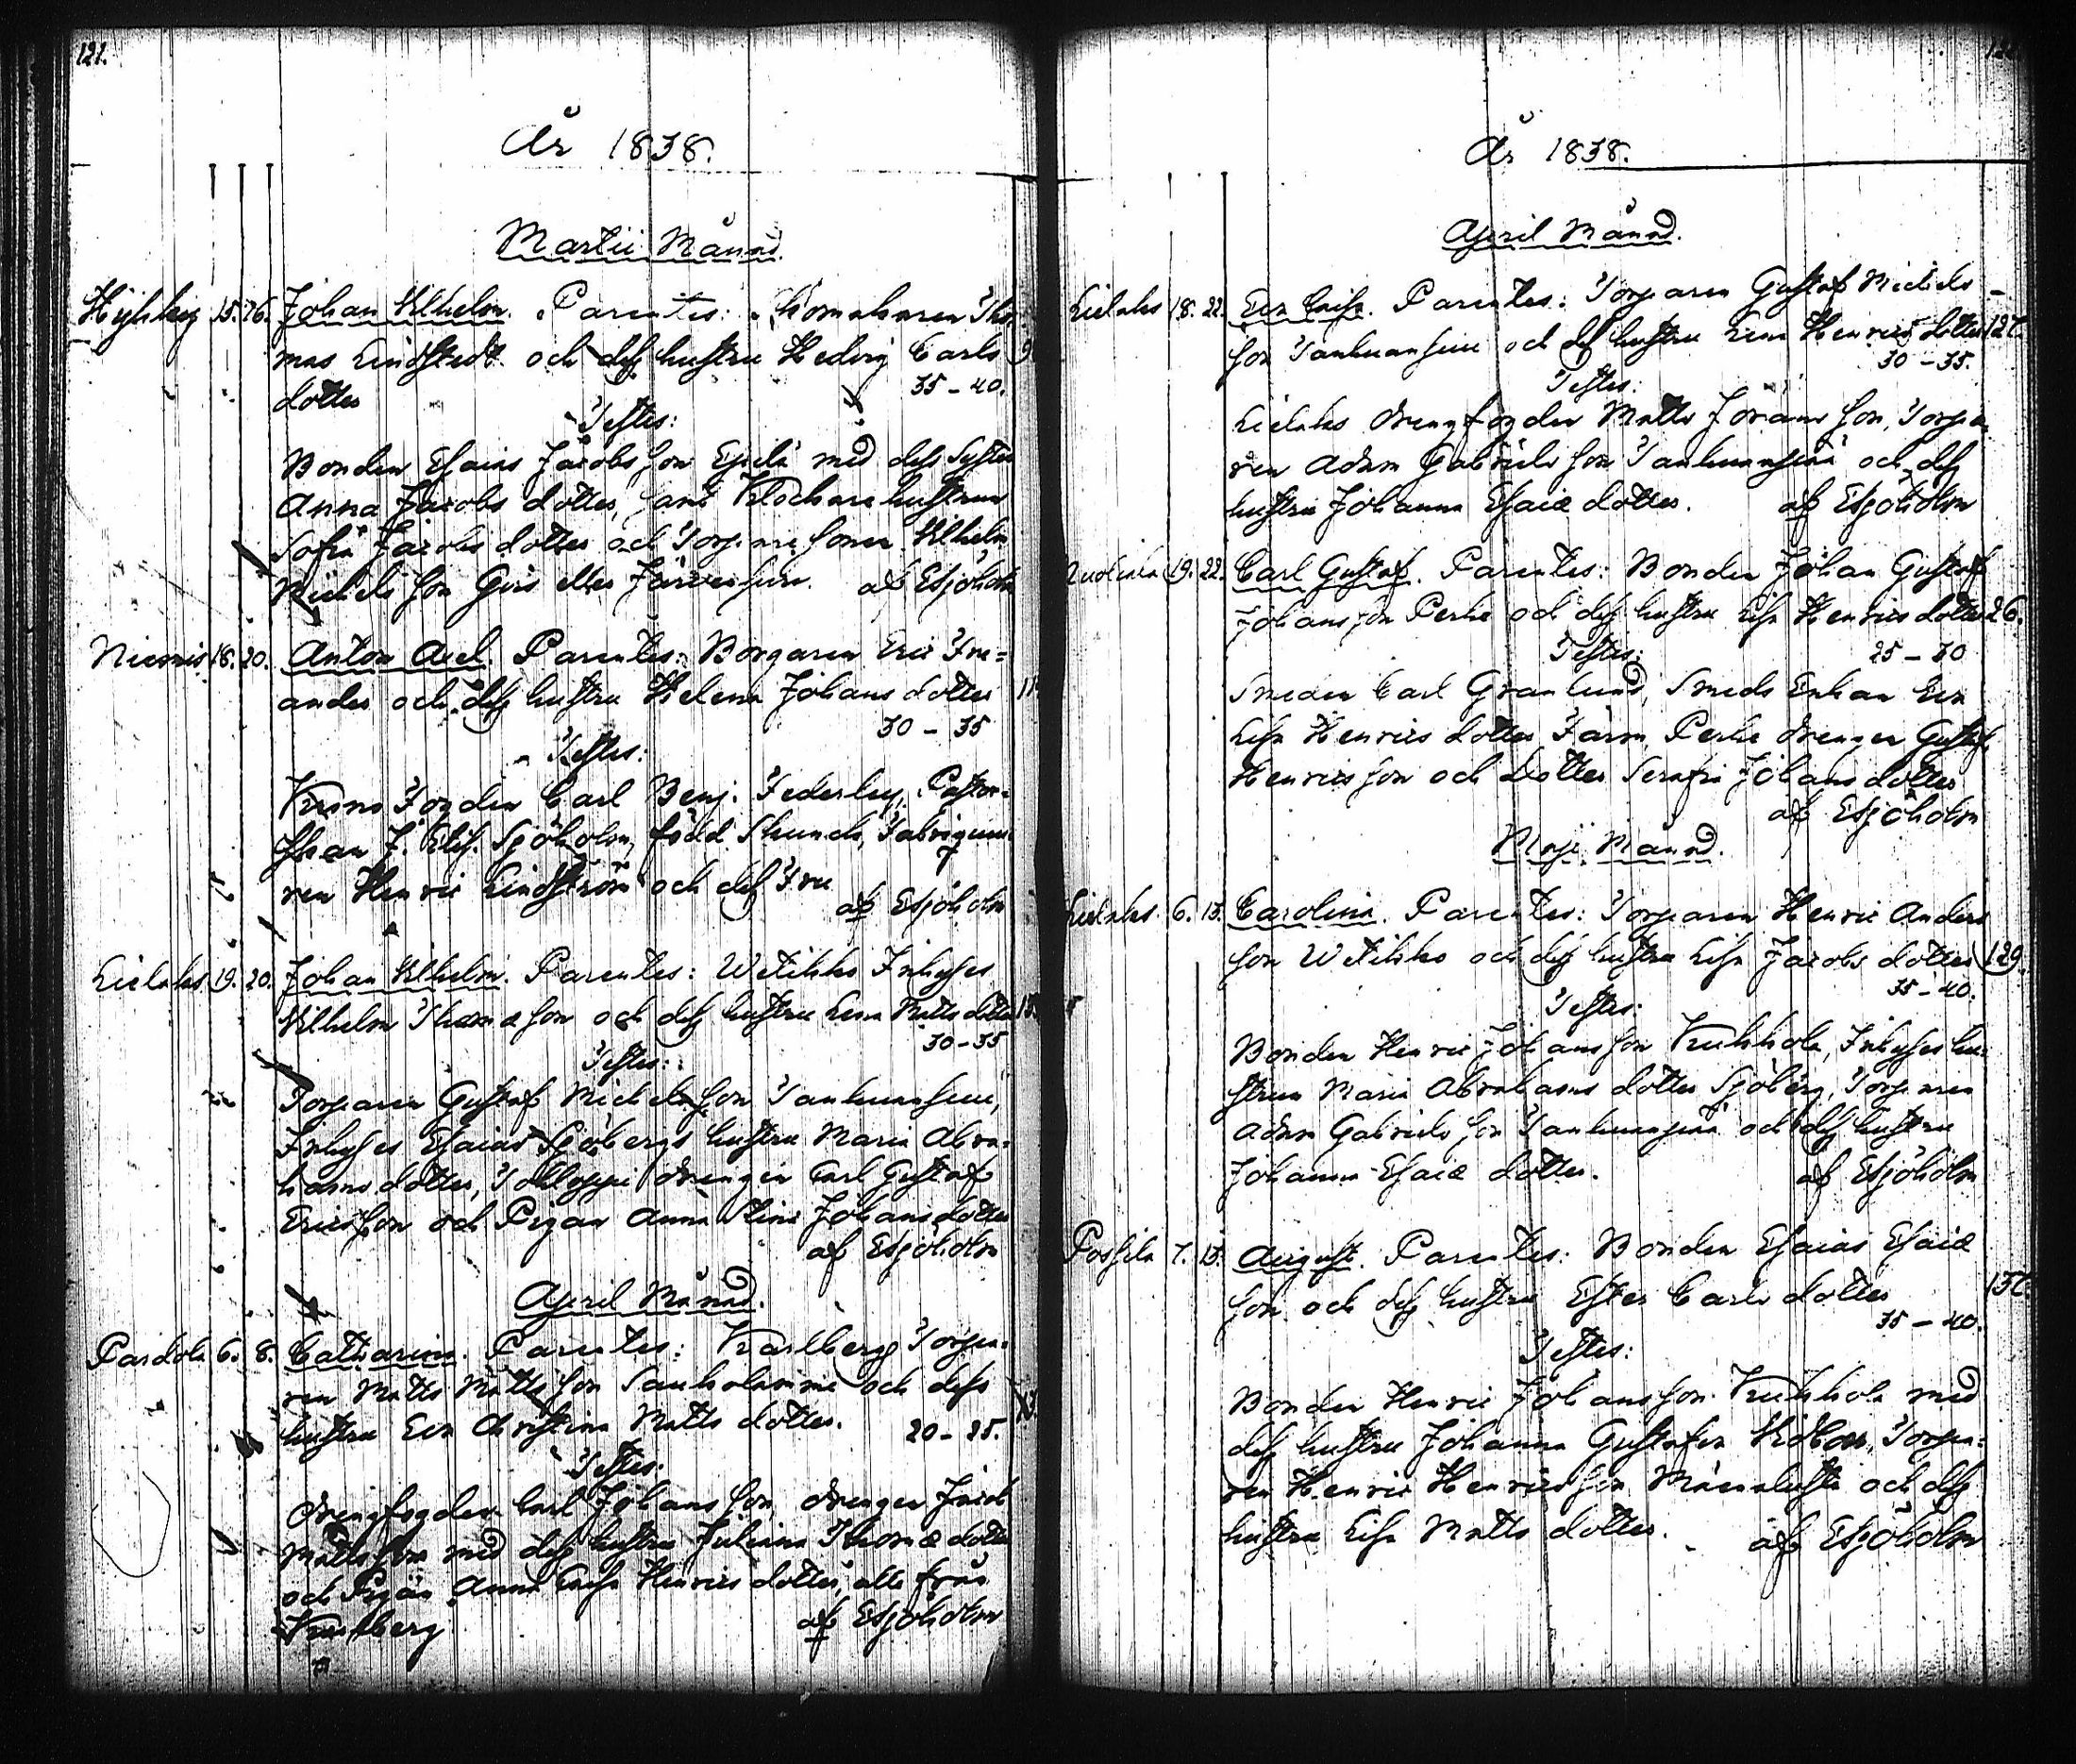 121.
År 1838.
Martii Månad.
15. 16. Johan Wilhelm. Parentes: Tho-
mas Lindstedt och dess hustru Hedvig Carls
dotter 35-40.
Testes:
Bonden Esaias Jacobs son Epilä med dess Syster
Anna Jacobs dotter, samt Klockare hustrun
Sofia Jacobs dotter och Torpare sonen Wilhelm
Michels son af ESjöholm
Niemis 18. 20. Anton Axel. Parentes: Borgaren Eric
ander och dess hustru Helena Johans dotter 11
30-35
Testes:
Krono Fogden Carl Benj. Federley, Pastor-
skan J. Elis. Sjöholm, född Fabriqueu-
ren Henric Lindström och dess Fru
af ESjöholm
Lielaks 19. 20. Johan Wilhelm. Parentes: Wetikko Inhyses
Wilhelm Thomæ son och dess hustru Lena Matts dotter
30-35
Testes:
Torparen Gustaf Michels son Tankuansuu,
Inhyses Esaias Sjöbergs hustru Maria Abra-
hams dotter, Tolloppi drengen Carl Gustaf
Ericsson och Pigan Anna Stina Johans dotter
af ESjöholm
April Månad.
6. 8. Catharina. Parentes: Karlberg Torpa-
ren Matts Matts son och dess
hustru Eva Christina Matts dotter. 20-25.
Testes:
Drengfogden Carl Johans son, drengen Jacob
Matts son med dess hustru Juliana Thomæ dotter
och Pigan Anna Caisa Henrics dotter, alla från
Karlberg af ESjöholm
År 1838.
April Månad.
Lielaks 18. 22. Eva Caisa. Parentes: Torparen Gustaf Michels
son Tankuansuu och dess hustru Lena Henrics dotter 127.
30-35.
Testes:
Lielaks drengfogden Matts Jörans son, Torpa-
ren Adam Gabriels son Tankuanpää och dess
hustru Johanna Esaiæ dotter. af ESjöholm
19. 22. Carl Gustaf. Parentes: Bonden Johan Gustaf
Johansson Perke och dess hustru Lisa Henrics dotter 26.
25-30
Testes:
Smeden Carl Granlund, Smeds Enkan Eva
Lisa Henrics dotter Färm, Perke drengen Gustaf
Henrics son och Dotter Serafia Johans dotter
af ESjöholm
Maji Månad.
Lielaks 6. 13. Carolina. Parentes: Torparen Henric Anders
son Wetikko och dess hustru Lisa Jacobs dotter 129.
35-40.
Testes:
Bonden Henric Johans son Kuhkola, Inhyses hu-
strun Maria Abrahams dotter Sjöberg, Torparen
Adam Gabriels son Tankuanpää och dess hustru
Johanna Esaiæ dotter. af ESjöholm
Possila 7. 13. August. Parentes: Bonden Esaias Esaiæ
son och dess hustru Ester Carls dotter
35-40.
Testes:
Bonden Henric Johans son Kuhkola med
dess hustru Johanna Gustafva Torpa-
ren Henric Henrics son och dess
hustru Lisa Matts dotter. af ESjöholm